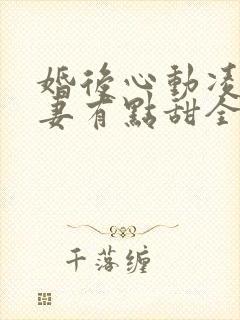 婚後心動凌
妻有點甜全
千落缠